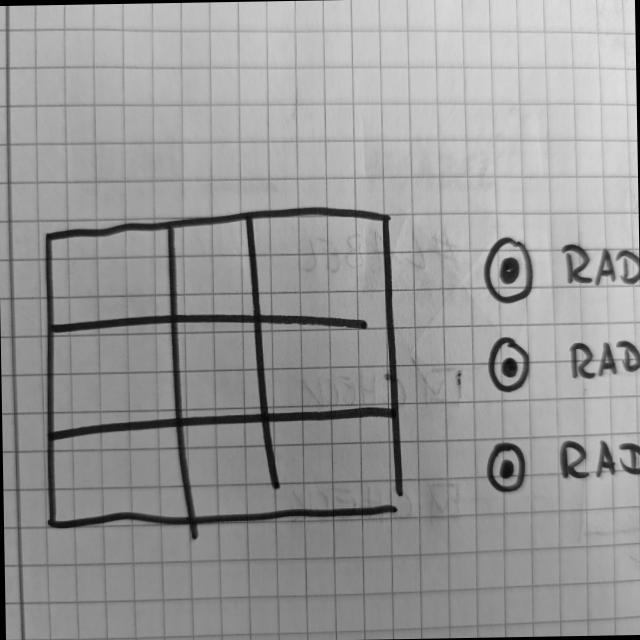 RAD
RAD
RAD